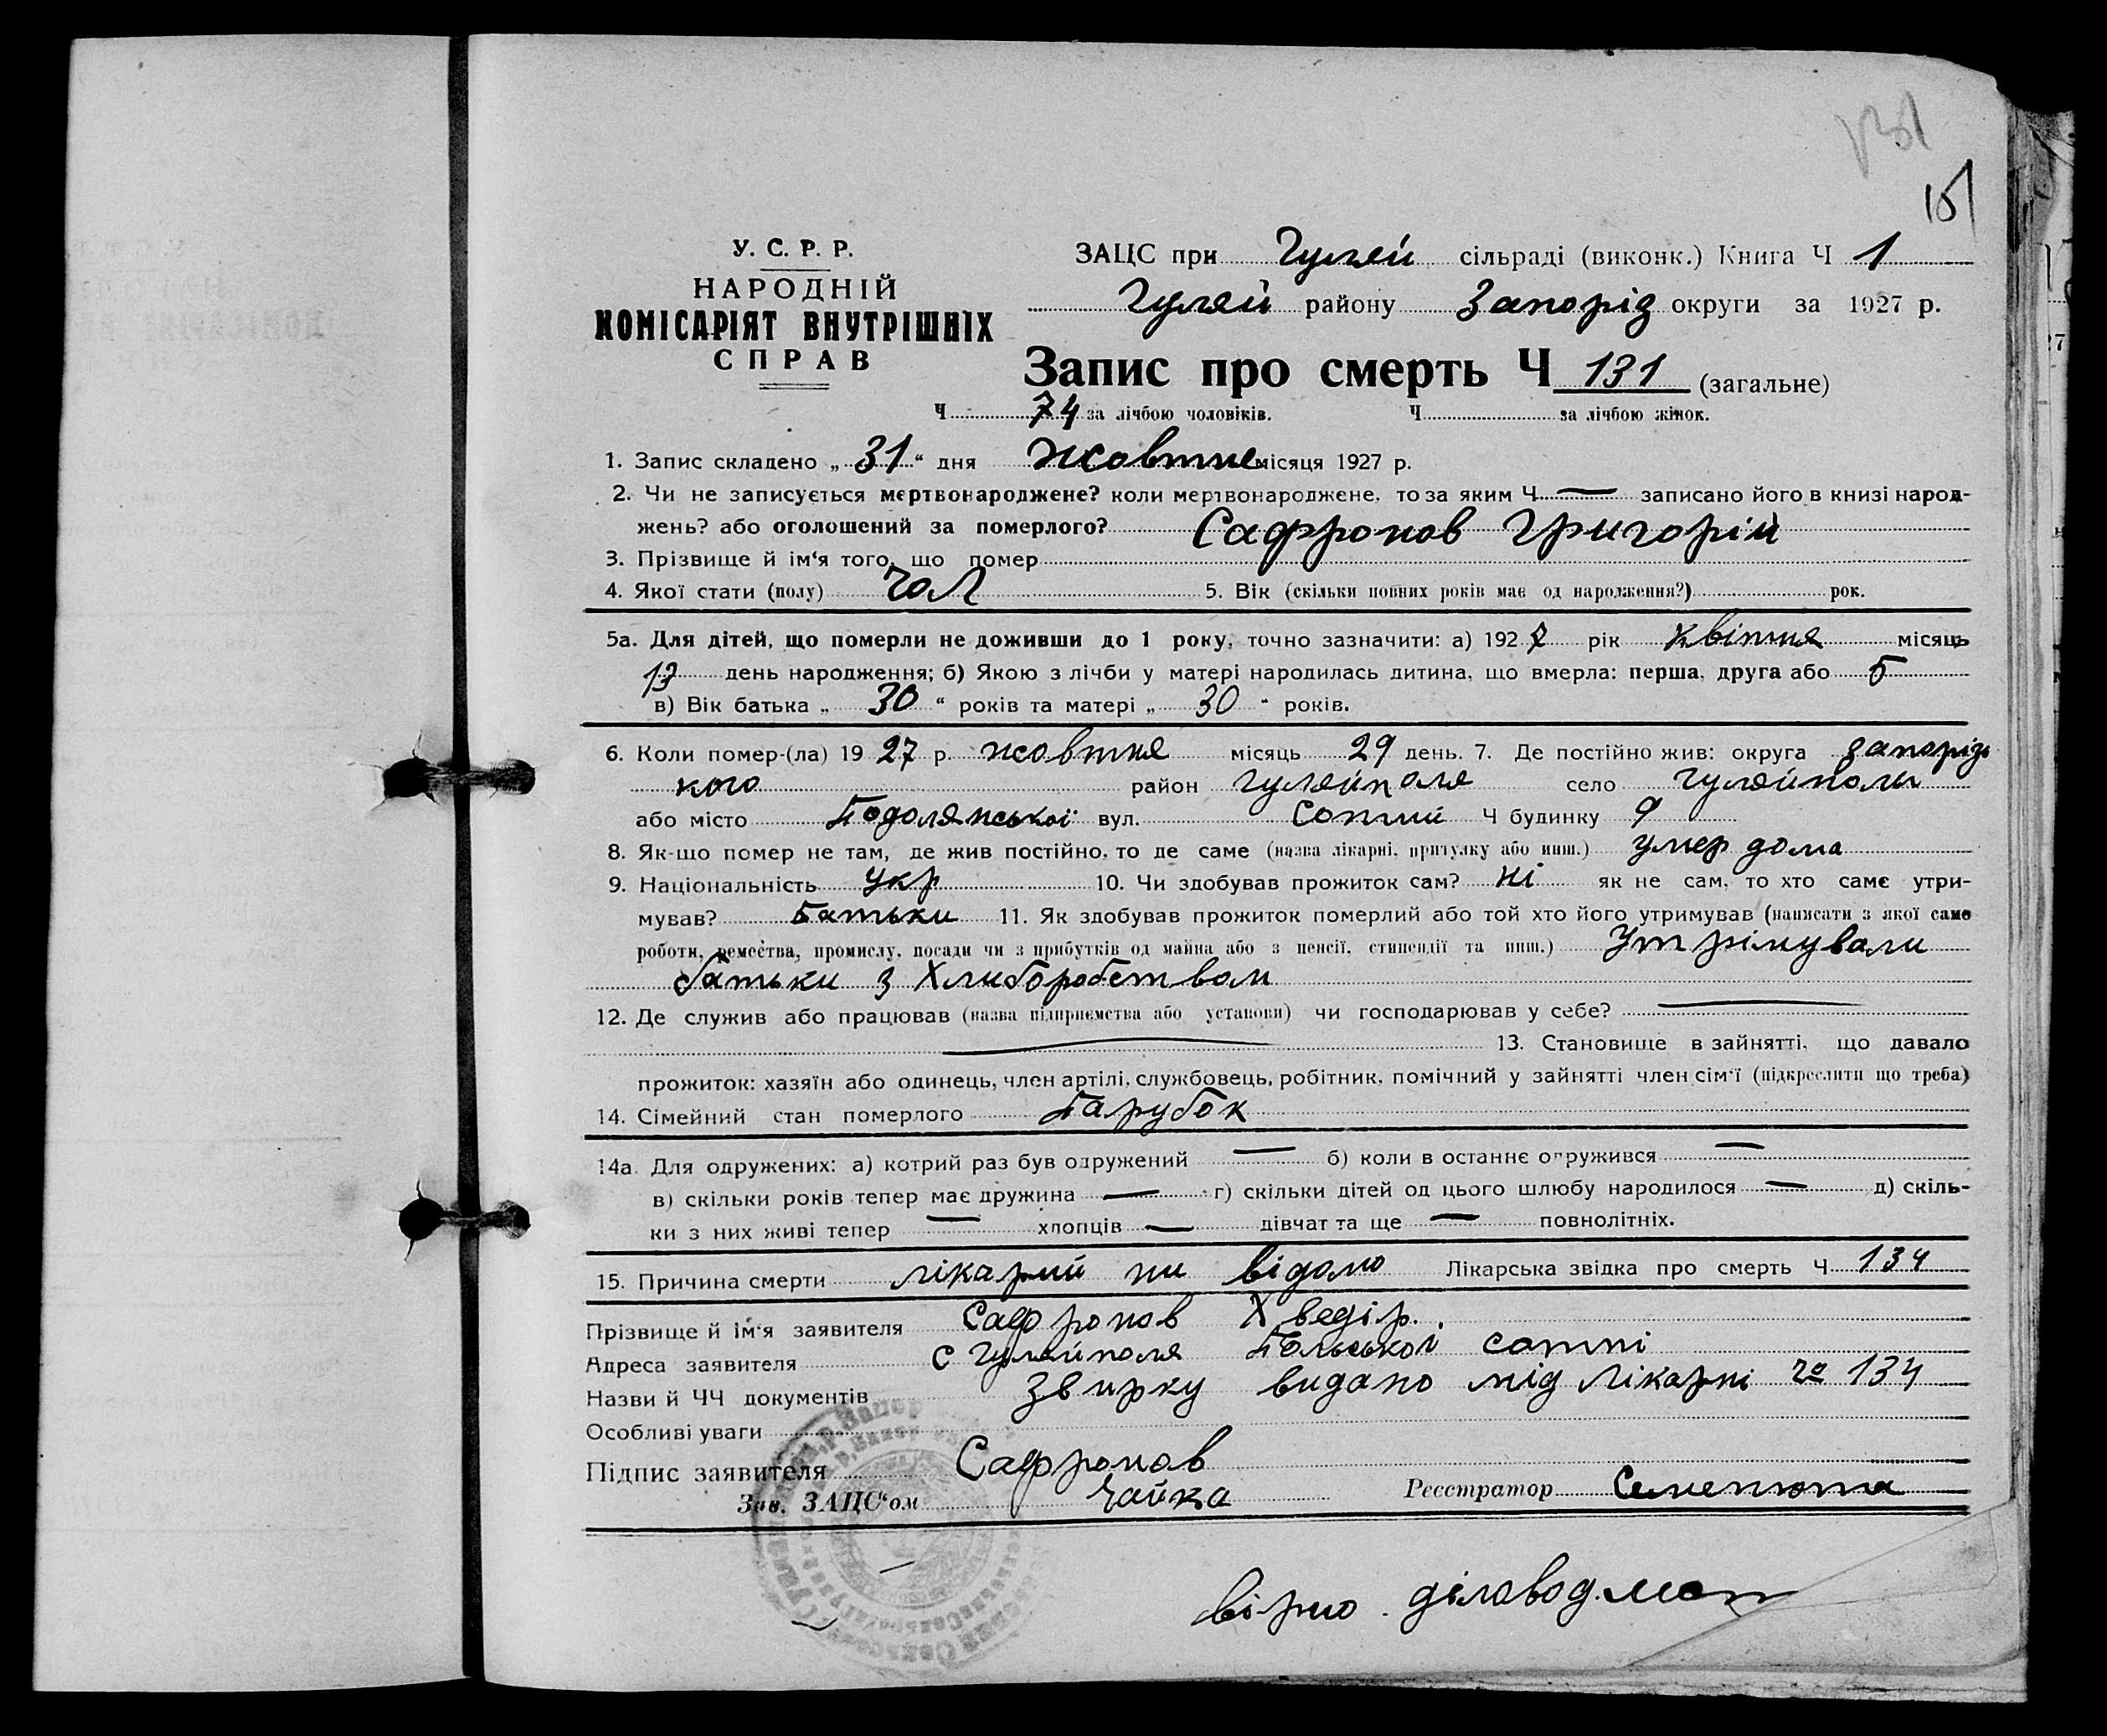 131
151
У. С. Р. Р.
НАРОДНІЙ
КОМІСАРІЯТ ВНУТРІШНІХ
СПРАВ
ЗАЦС при Гуляй сільраді (виконк.) Книга Ч 1
Гуляй району Запоріз округи за 1927 р.
Запис про смерть Ч 131 (загальне)
Ч 74 за лічбою чоловіків. Ч за лічбою жінок.
1. Запис складено „ 31 “ дня жовтне місяця 1927 р.
2. Чи не записується мертвонароджене? коли мертвонароджене, то за яким Ч — записано його в книзі народ-
жень? або оголошений за померлого? Сафронов Григорій
3. Прізвище й ім‘я того, що помер
4. Якої стати (полу) чол 5. Вік (скільки повних років має од народження?) рок.
5а. Для дітей, що померли не доживши до 1 року, точно зазначити: а) 192 7 рік квітня місяць
13 день народження; б) Якою з лічби у матері народилась дитина, що вмерла: перша, друга або 5
в) Вік батька „ 30 “ років та матері „ 30 “ років.
6. Коли помер-(ла) 19 27 р. жовтня місяць 29 день. 7. Де постійно жив: округа запорізь
кого район Гуляйполя село Гуляйполи
або місто Подолянської вул. Сотни Ч будинку 9
8. Як-що помер не там, де жив постійно, то де саме (назва лікарні, притулку або инш.) умер дома
9. Національність укр 10. Чи здобував прожиток сам? ні як не сам, то хто саме утри-
мував? Батьки 11. Як здобував прожиток померлий або той хто його утримував (написати з якої саме
роботи, ремества, промислу, посади чи з прибутків од майна або з пенсії, стипендії та инш.) Утрімували
батьки з Хлиборобством
12. Де служив або працював (назва підприємства або установи) чи господарював у себе? —
— 13. Становище в зайнятті, що давало
прожиток: хазяїн або одинець, член артілі, службовець, робітник, помічний у зайнятті член сім‘ї (підкреслити що треба)
14. Сімейний стан померлого Парубок
14а Для одружених: а) котрий раз був одружений — б) коли в останнє одружився —
в) скільки років тепер має дружина — г) скільки дітей од цього шлюбу народилося — д) скіль-
ки з них живі тепер — хлопців — дівчат та ще — повнолітніх.
15. Причина смерти лікарий ни відамо Лікарська звідка про смерть Ч 134
Прізвище й ім‘я заявителя Сафронов Хведір.
Адреса заявителя с Гуляйполя Польської сотні
Назви й ЧЧ документів видано від Лікарні 134
Особливі уваги
Підпис заявителя Сафронов
Зав. ЗАЦС‘ом Чайка Реєстратор Семенюта
вірно діловод.